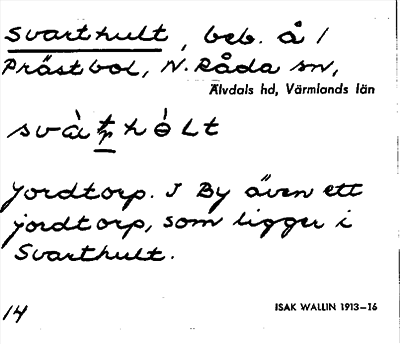 Svarthult, beb. å 1
Prästbol, N. Råda sn,
Älvdals hd, Värmlands län
Jordtorp. I By även ett
jordtorp, som ligger i
Svarthult.
14
ISAK WALLIN 1913–16